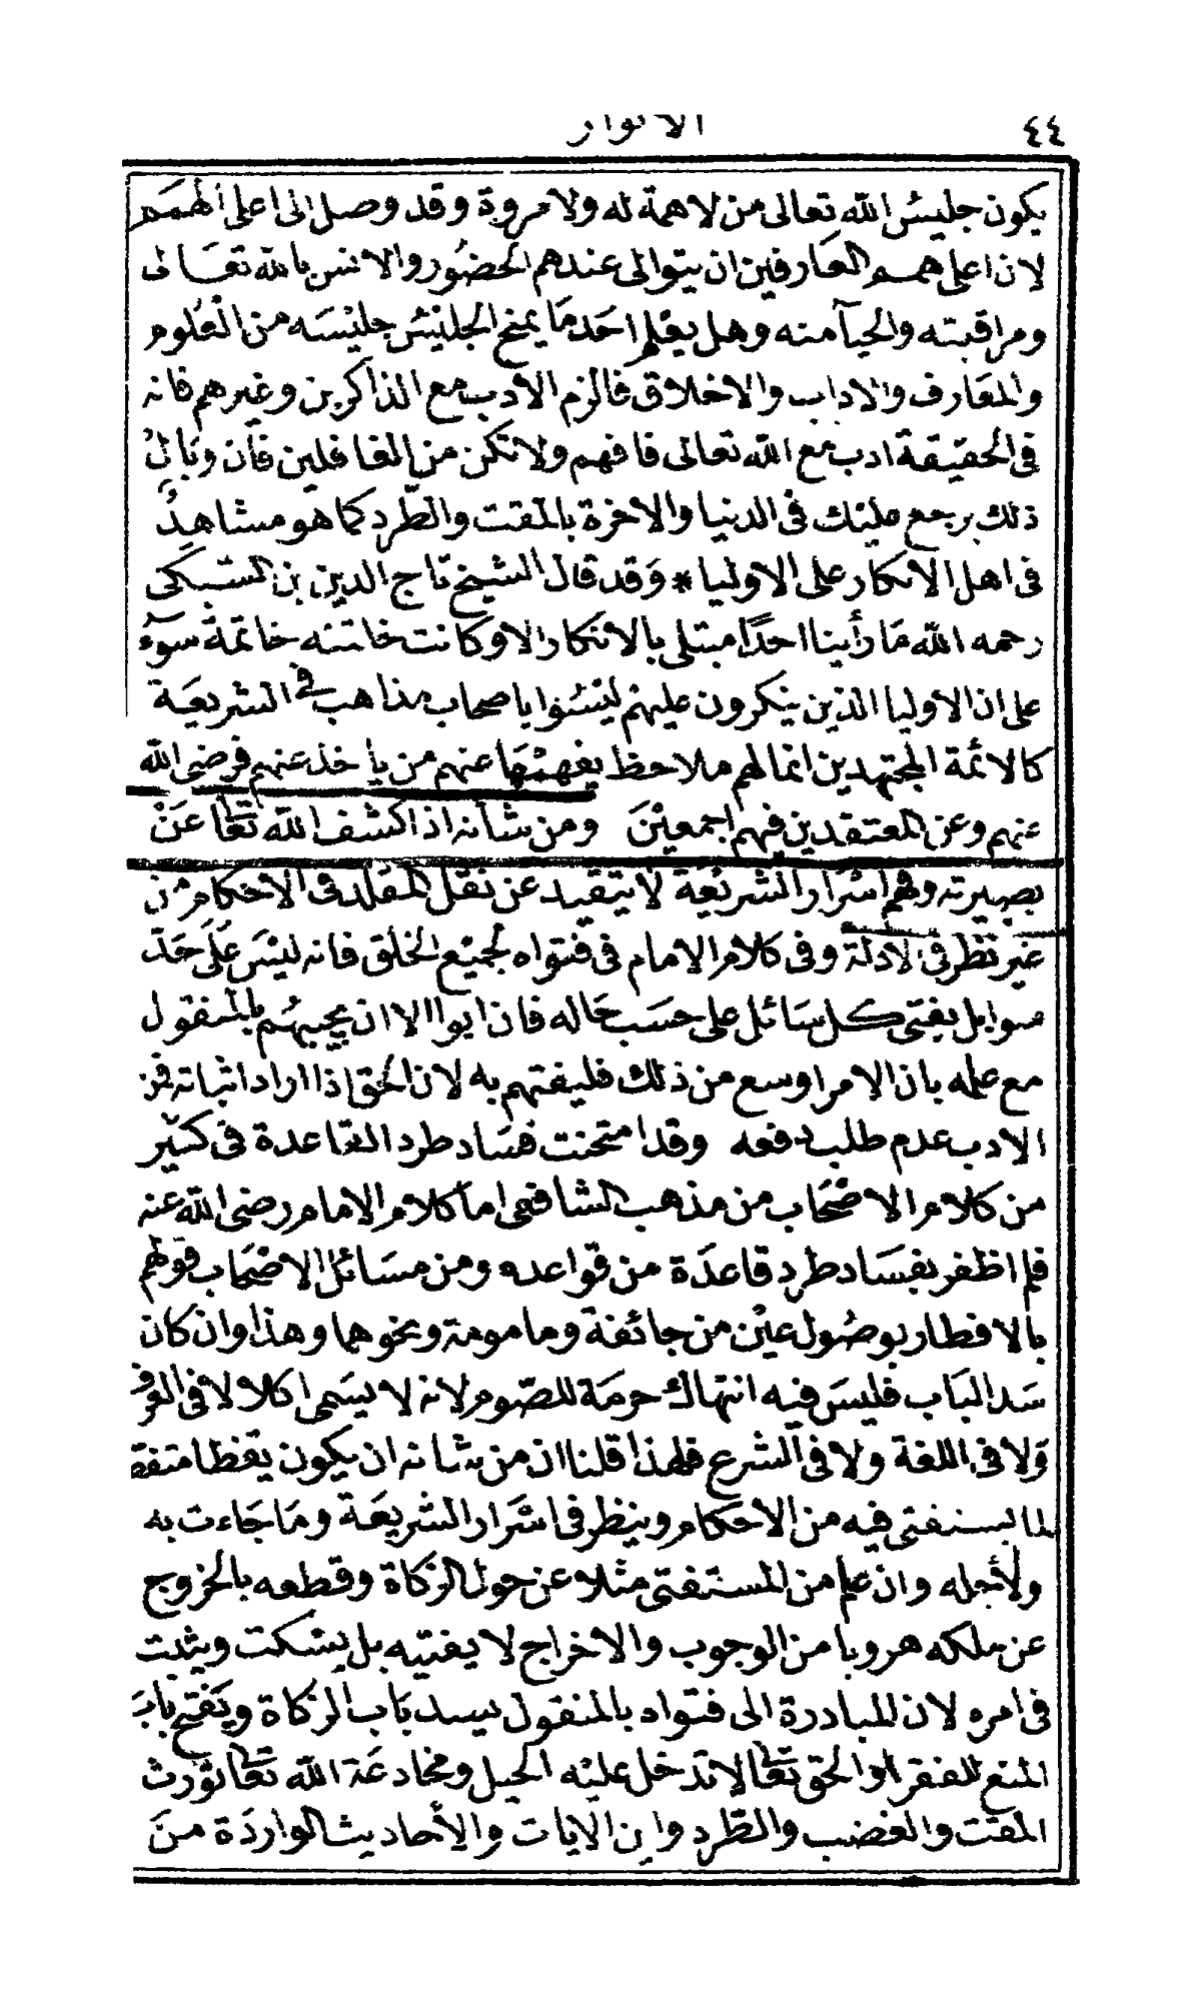 ٤٤ الانوار
يكون جليس الله تعالى من لاهمة له ولا مروة وقد وصل الى اعلى الهمم
لان اعلى همم العارفين ان يتوالى عندهم الحضور والانس بالله تعالى
ومراقبته والحيآ منه وهل يعلم احد ما يمنح الجليس جليسه من العلوم
والمعارف والاداب والاخلاق فالزم الادب مع الذاكرين وغيرهم فانه
فى الحقيقة ادب مع الله تعالى فافهم ولا تكن من الغافلين فان وبال
ذلك يرجع عليك فى الدنيا والاخرة بالمقت والطرد كما هو مشاهد
فى اهل الانكار على الاوليا * وقد قال الشيخ تاج الدين بن السبكى
رحمه الله ما رأينا احدا مبتلى بالانكار الا وكانت خاتمته خاتمة سوء
على ان الاوليا الذين ينكرون عليهم ليسوا باصحاب مذاهب فى الشريعة
كالائمة المجتهدين انما لهم ملاحظ يفهمها عنهم من ياخذ عنهم فرضى الله
عنهم وعن المعتقدين فيهم اجمعين ومن شانه اذا كشف الله تعالى عن
بصيرته وفهم اسرار الشريعة لا يتقيد عن نقل المقلد فى الاحكام من
غير نظر فى الادلة وفى كلام الامام فى فتواه لجميع الخلق فانه ليس على حد
سوا بل يفتى كل سائل على حسب حاله فان ابوا الا ان يجيبهم بالمنقول
مع علمه بان الامر اوسع من ذلك فليفتهم به لان الحق اذا اراد اثباته فمن
الادب عدم طلب دفعه وقد امتحنت فساد طرد القاعدة فى كثير
من كلام الاصحاب من مذهب الشافعى اما كلام الامام رضى الله عنه
فلم اظفر بفساد طرد قاعدة من قواعده ومن مسائل الاصحاب قولهم
بالافطار بوصول عين من جائفة ومامومة ونحوهما وهذا وان كان
سد الباب فليس فيه انتهاك حرمة للصوم لانه لا يسمى اكلا لا فى العرف
ولا فى اللغة ولا فى الشرع فلهذا قلنا ان من شانه ان يكون يقظا متفقد
لما يستفتى فيه من الاحكام وينظر فى اسرار الشريعة وما جاءت به
ولأجله وان علم من المستفتى مثلا عن حول الزكاة وقطعه بالخروج
عن ملكه هروبا من الوجوب والاخراج لا يفتيه بل يسكت ويثبت
فى امره لان المبادرة الى فتواه بالمنقول يسد باب الزكاة ويفتح باب
المنع للفقرا والحق تعالى لا تدخل عليه الحيل ومخادعة الله تعالى تورث
المقت والغضب والطرد واين الايات والأحاديث الواردة من